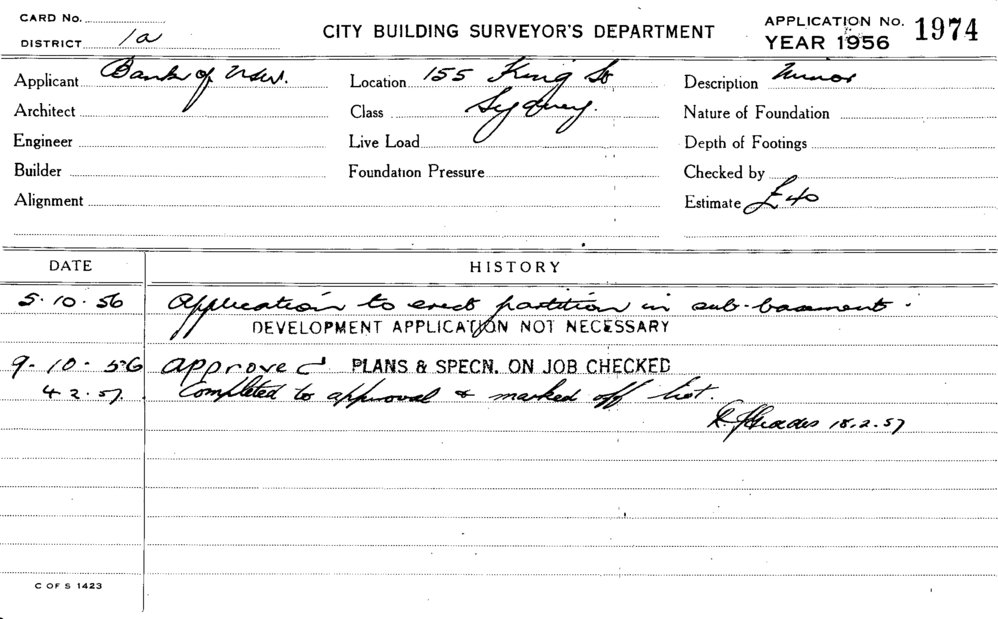 CARD No.
DISTRICT 1a
CITY BUILDING SURVEYOR'S DEPARTMENT
APPLICATION No. 1974
YEAR 1956
Applicant Bank of NSW.
Location 155 King St
Description Minor
Architect
Class Sydney.
Nature of Foundation
Engineer
Live Load
Depth of Footings
Builder
Foundation Pressure
Checked by
Alignment
Estimate £40
DATE
HISTORY
5.10.56 Application to erect partition in sub-basement.
DEVELOPMENT APPLICATION NOT NECESSARY
9-10-56 approved PLANS & SPECN. ON JOB CHECKED
4.2.57. Completed to approval & marked off list.
18.2.57
C OF S 1423